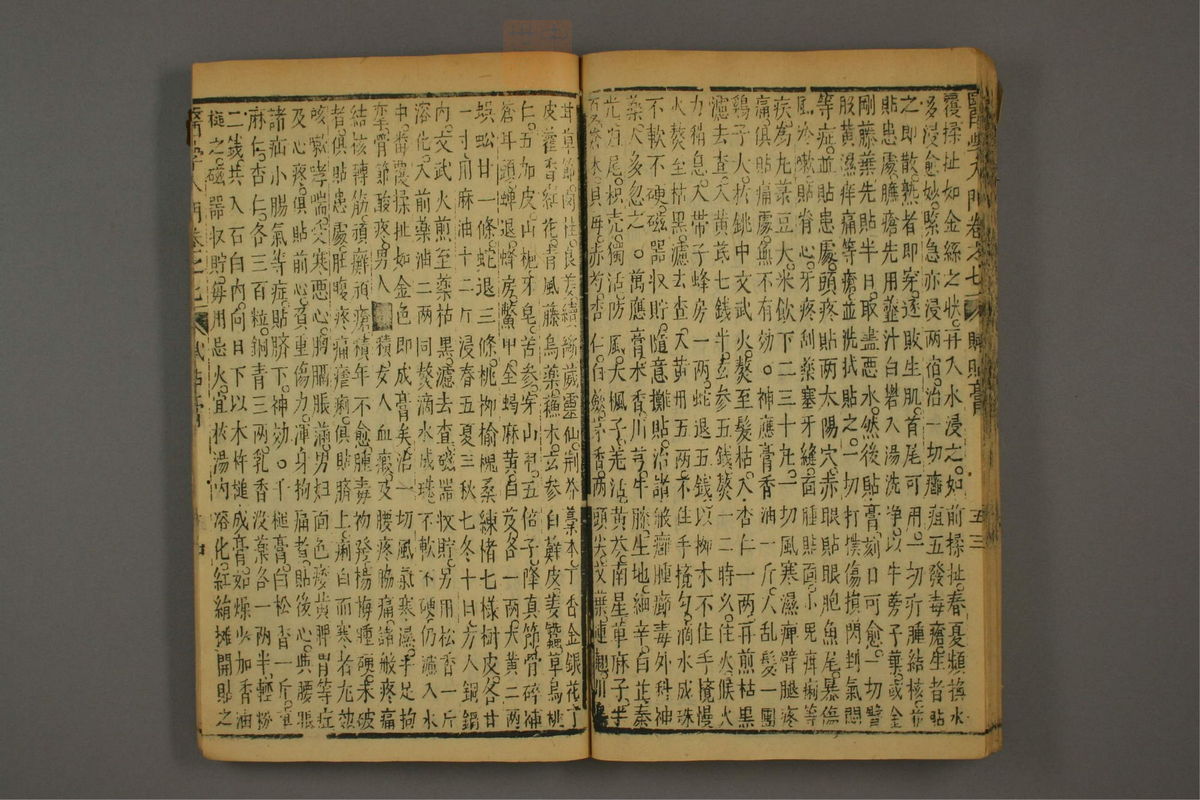 醫學入門卷之七 賦貼膏 五三
覆揉扯如金絲之狀再入水浸之如前揉扯春夏頻換水
多浸愈妙緊急亦浸兩宿治一切癰疽五發毒瘡生者貼
之即散熟者即穿逐敗生肌首尾可用一切疔腫結核
貼患處臁瘡先用虀汁白礬入湯洗淨以牛蒡子葉或金
剛藤葉先貼半日取盡惡水然後貼膏刻日可愈一切臂
股黃濕痒痛等瘡並洗拭貼之一切打撲傷損閃判氣悶
等症並貼患處頭疼貼兩太陽穴赤眼貼眼胞魚尾暴傷
風冷嗽貼脊心牙疼刮藥塞牙縫面腫貼面小兒疳痢等
疾為丸菉豆大米飲下二三十丸一切風寒濕痹臂腿疼
痛俱貼痛處無不有効○神應膏香油一斤入乱髮一團
雞子大於銚中文武火熬至髮枯入杏仁一兩再煎枯黑
濾去查入黃芪七錢半玄參五錢熬一二時久住火候火
力稍息入帶子蜂房一兩蛇退五錢以柳木不住手攪慢
火熬至枯黑濾去查入黃丹五兩不住手攪勻滴水成珠
不軟不硬磁器收貯隨意攤貼治諸般癰腫癤毒外科神
藥不多忽之○萬應膏木香川芎牛膝生地細辛白芷秦
艽歸尾枳壳獨活防風大楓子羌活黃芩南星蓖麻子半
夏蒼朮貝母赤芍杏仁白斂茅香兩頭尖艾葉連翹川烏
甘草節肉桂良姜續斷威靈仙荊芥藁本丁香金銀花丁
皮藿香紅花青風藤烏藥蘓木玄參白鮮皮姜蠶草烏桃
仁五加皮山梔牙皂苦參穿山甲五倍子降真節骨碎補
蒼耳頭蟬退蜂房鱉甲全蝎麻黃白芨各一兩大黃二兩
蜈蚣廿一條蛇退三條桃柳榆槐桑練楮七樣樹皮各廿
一寸用麻油十二斤浸春五夏三秋七冬十日方入銅鍋
內文武火煎至藥枯黑濾去查磁器收貯另用松香一斤
溶化入前藥油二兩同熬滴水成珠不軟不硬仍濾入水
中番覆揉扯如金色即成膏矣治一切風氣寒濕手足拘
攣骨節酸疼男人積女人血瘕及腰疼脇痛諸般疼痛
結核轉筋頑癬頑瘡積年不愈腫毒初發楊梅腫硬未破
者俱貼患處肚腹疼痛瘧痢俱貼臍上痢白而寒者尤效
咳嗽哮喘受寒惡心胸膈脹滿男婦面色痿黃脾胃等症
及心疼俱貼前心負重傷力渾身拘痛者貼後心與腰眼
諸疝小腸氣等症貼臍下神効○千槌膏白松香一斤
麻仁杏仁各三百粒銅青三兩乳香沒藥各一兩半輕粉
二錢共入石臼內向日下以木杵槌成膏如燥少加香油
槌之磁器收貯每用忌火宜於湯內溶化紅絹攤開貼之
醫學入門卷之七